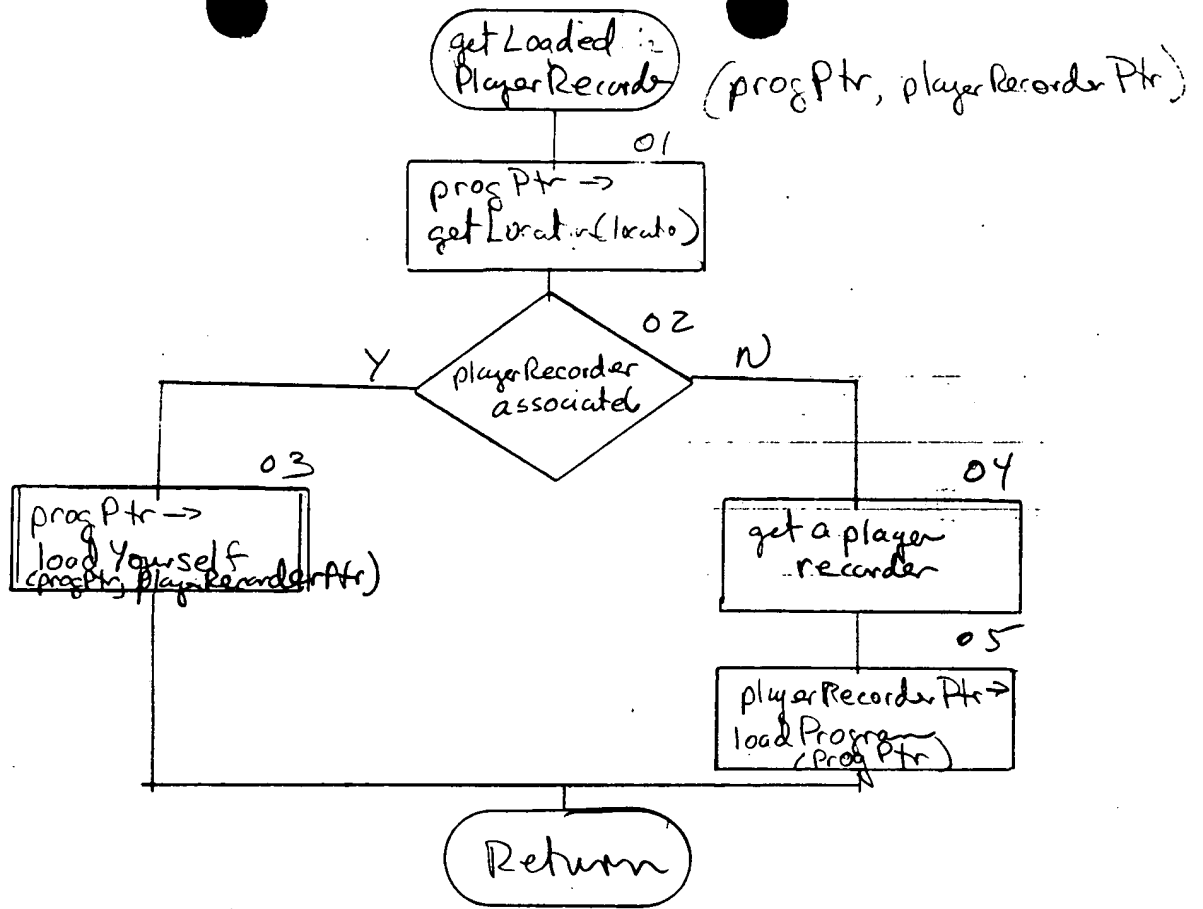 getLoaded
PlayerRecorder
(progPtr, playerRecorderPtr)
01
progPtr →
02
Y
N
playerRecorder
associated
03
progPtr →
load Yourself
(progPtr, playerRecorderPtr)
04
get a player
recorder
05
playerRecorderPtr →
loadProgram
(Prog Ptr)
Return